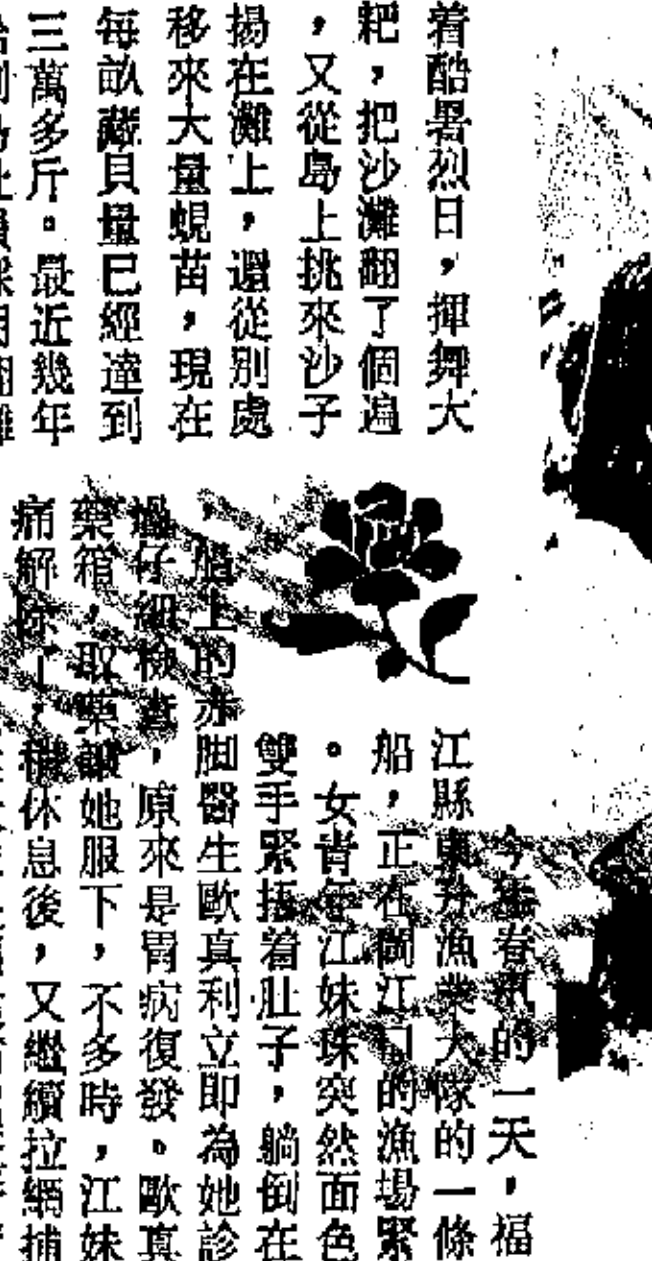 着酷暑烈日，揮舞大
耙，把沙灘翻了個遍
，又從島上挑來沙子
揚在灘上，還從別處
移來大量蜆苗，現在
每畝藏貝量已經達到
三萬多斤。最近幾年
今年春汛的一天，福
江縣東升漁業大隊的一條
船，正在閩江口的漁場緊
。女青年江妹珠突然面色
雙手緊捂着肚子，躺倒在
，船上的赤脚醫生歐真利立即為她診
仔細檢查，原來是胃病復發。歐真
藥箱，取藥讓她服下，不多時，江妹
痛解除了，稍休息後，又繼續拉網捕